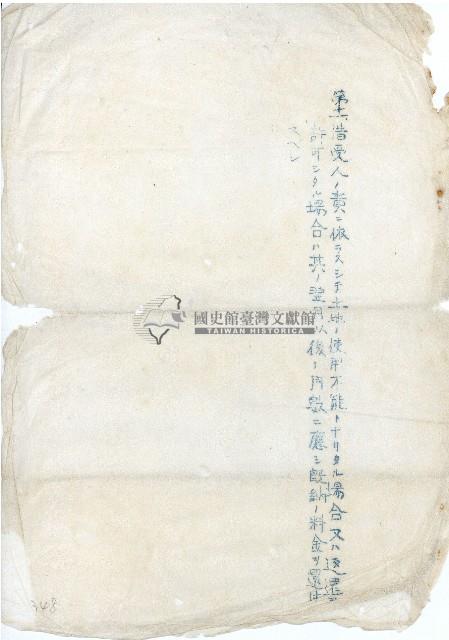 第十一借受人ノ責ニ依ラスシテ土地ノ使用不能トナリタル場合又ハ返還ヲ
許可シタル場合ハ其ノ翌月以後ノ月数ニ應シ既納ノ料金ヲ還付
スヘシ
國史館臺灣文獻館
TAIWAN HISTORICA
348